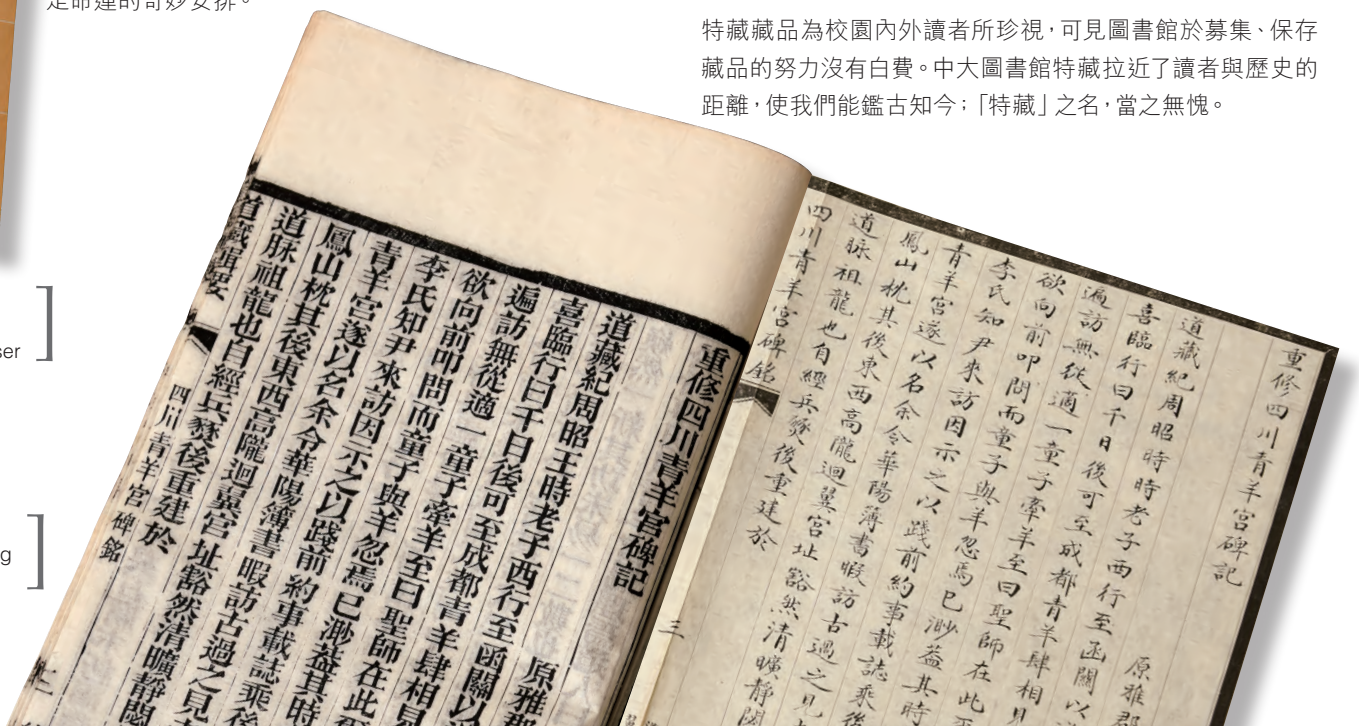 是命運的奇妙安排。
特藏藏品為校園內外讀者所珍視,可見圖書館於募集、保存
藏品的努力沒有白費。中大圖書館特藏拉近了讀者與歷史的
距離,使我們能鑑古知今;「特藏」之名,當之無愧。
ser
g
重修四川青羊宮碑記
原雅
道藏紀周昭王時老子西行至函關以
喜臨行曰千日後可至成都青羊肆相見
遍訪無從適一童子牽羊至曰聖師在此
欲向前叩問而童子與羊忽焉已渺葢其時
李氏知尹來訪因示之以踐前約事載誌乘後
青羊宮遂以名余令華陽簿書暇訪古過之見
鳳山枕其後東西高隴迴翼宮址豁然清曠靜
道脉祖龍也自經兵燹後重建於
道藏輯要
四川青羊宮碑銘
重修四川青羊宮碑記
原雅郡
道藏紀周昭時時老子西行至函關以
喜臨行曰千日後可至成都青羊肆相
遍訪無從適一童子牽羊至曰聖師在此
欲向前叩問而童子與羊忽焉已渺葢其時
李氏知尹來訪因示之以踐前約事載誌乘後
青羊宮遂以名余令華陽簿書暇訪古過之見
鳳山枕其後東西高隴迴翼宮址豁然清曠靜
道脉祖龍也自經兵燹後重建於
四川青羊宮碑銘
三